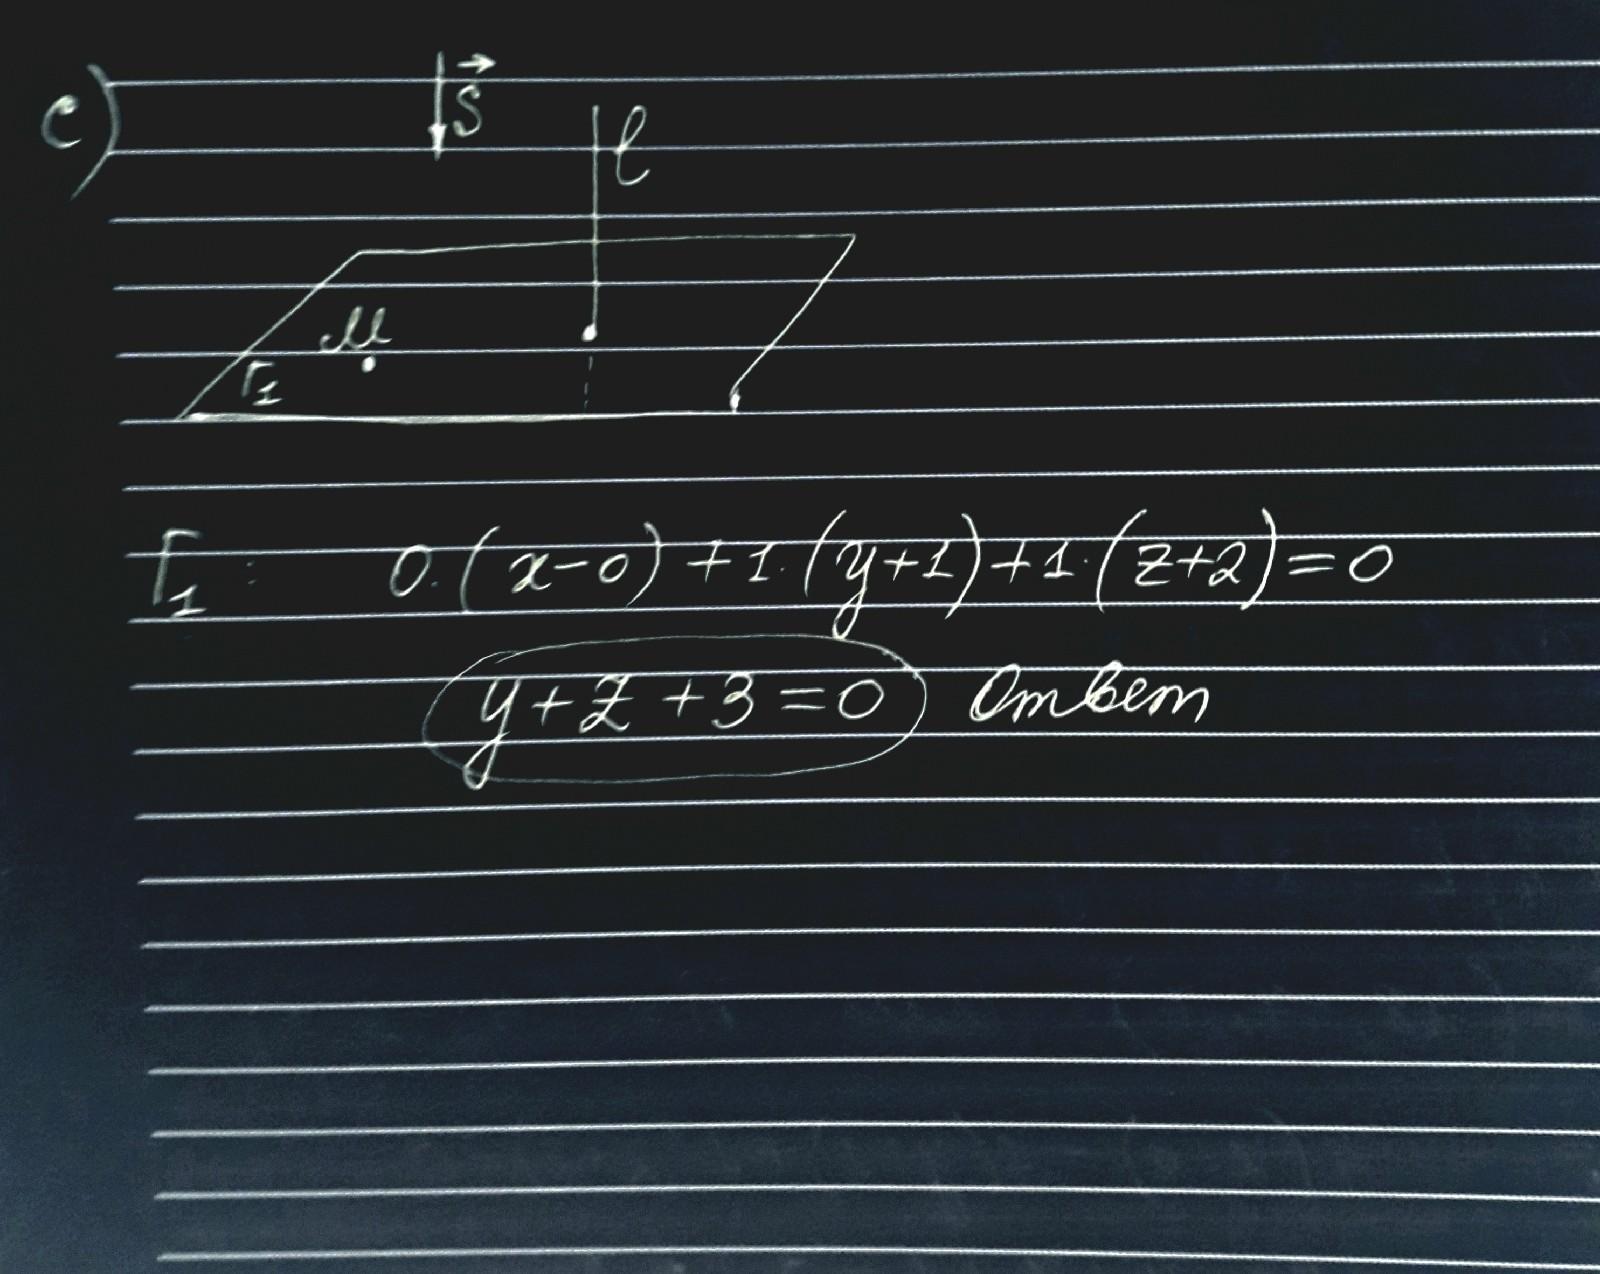 c)
S⃗
l
M
Г₁
Г₁ : 0·(x-0)+1·(y+1)+1·(z+2)=0
y+z+3=0 Ответ